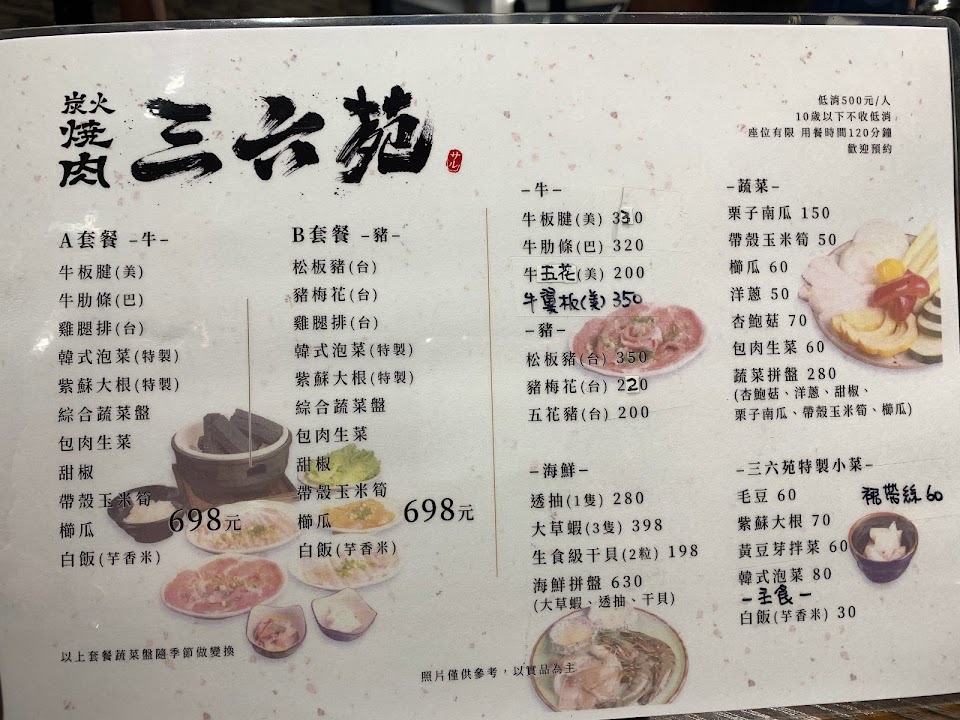 炭火
燒肉
三六苑
サル
低消500元/人
10歲以下不收低消
座位有限 用餐時間120分鐘
歡迎預約
A套餐 –牛–
牛板腱(美)
牛肋條(巴)
雞腿排(台)
韓式泡菜(特製)
紫蘇大根(特製)
綜合蔬菜盤
包肉生菜
甜椒
帶殼玉米筍
櫛瓜
白飯(芋香米)
698元
以上套餐蔬菜盤隨季節做變換
B套餐 –豬–
松板豬(台)
豬梅花(台)
雞腿排(台)
韓式泡菜(特製)
紫蘇大根(特製)
綜合蔬菜盤
包肉生菜
甜椒
帶殼玉米筍
櫛瓜
白飯(芋香米)
698元
–牛–
牛板腱(美) 330
牛肋條(巴) 320
牛五花(美) 200
牛翼板(美) 350
–豬–
松板豬(台) 350
豬梅花(台) 220
五花豬(台) 200
–海鮮–
透抽(1隻) 280
大草蝦(3隻) 398
生食級干貝(2粒) 198
海鮮拼盤 630
(大草蝦、透抽、干貝)
–蔬菜–
栗子南瓜 150
帶殼玉米筍 50
櫛瓜 60
洋蔥 50
杏鮑菇 70
包肉生菜 60
蔬菜拼盤 280
(杏鮑菇、洋蔥、甜椒、
栗子南瓜、帶殼玉米筍、櫛瓜)
–三六苑特製小菜–
毛豆 60
裙帶絲 60
紫蘇大根 70
黃豆芽拌菜 60
韓式泡菜 80
–主食–
白飯(芋香米) 30
照片僅供參考，以實品為主